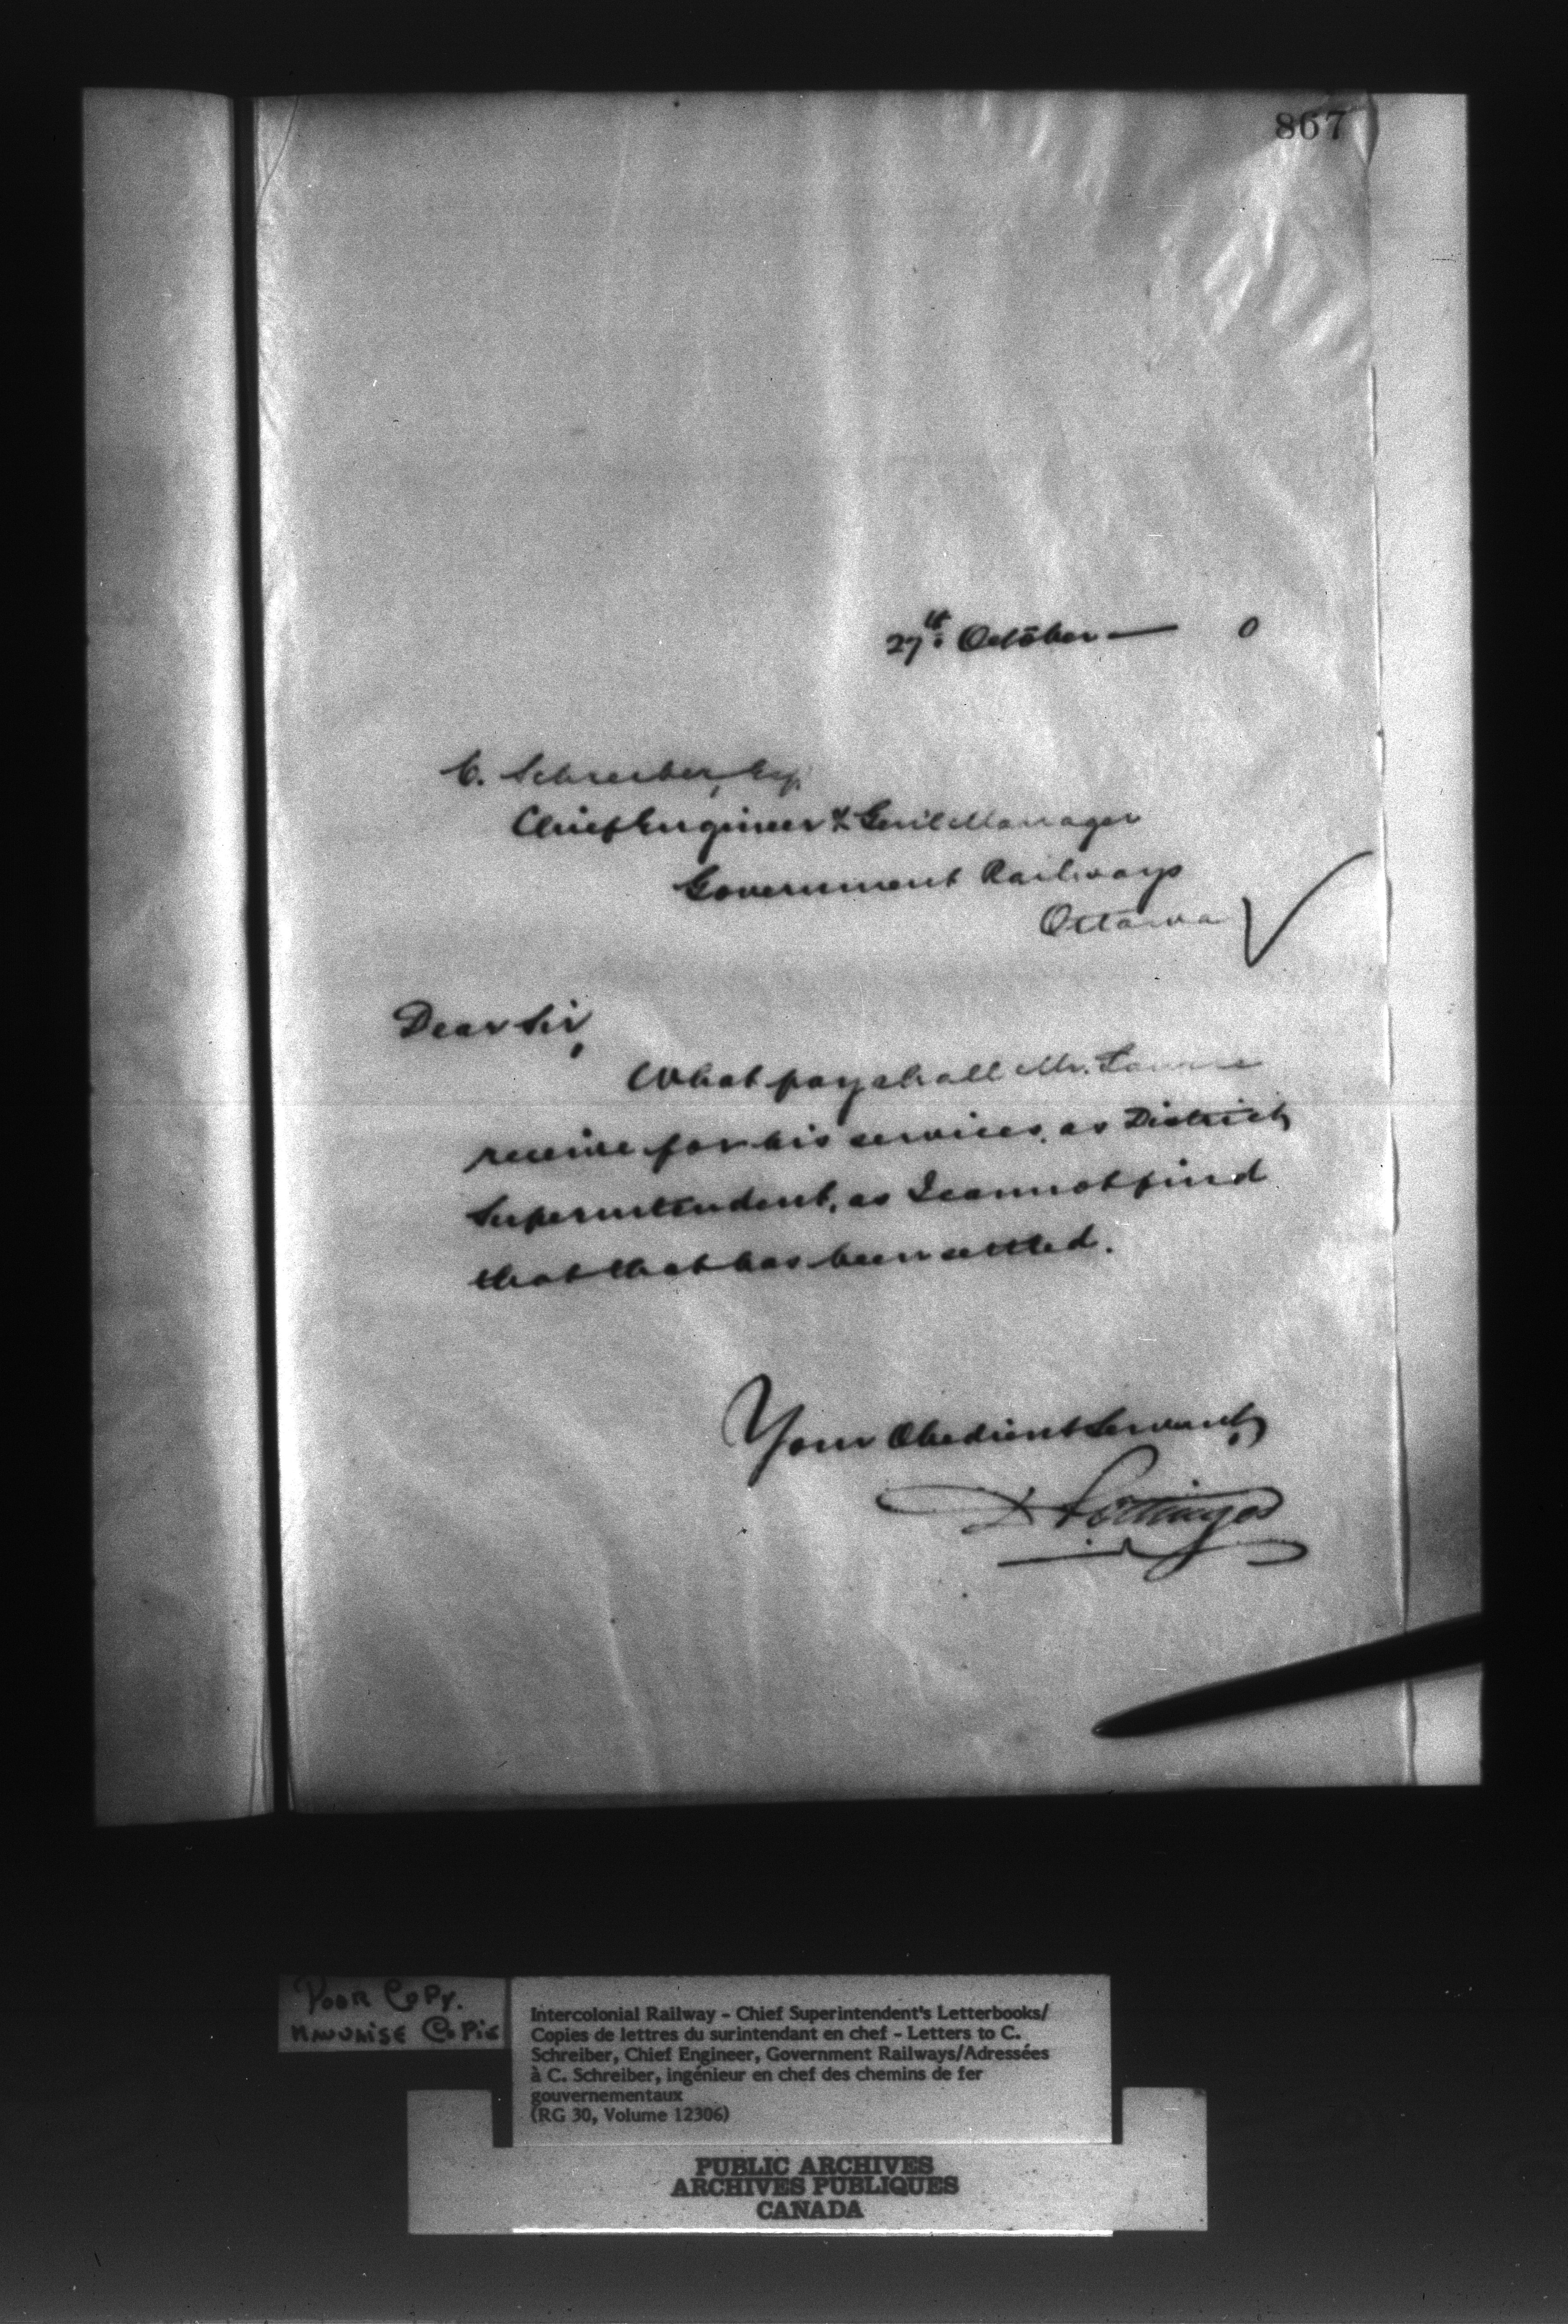 867
27th October — 0
C. Schreiber, Esq.
Chief Engineer & Genl Manager
Government Railways
Ottawa
Dear Sir,
What pay shall Mr.
receive for his services, as District
Superintendent, as I cannot find
that that has been settled.
Your Obedient Servant,
D Pottinger
POOR COPY.
MAUVAISE COPIE
Intercolonial Railway - Chief Superintendent's Letterbooks/
Copies de lettres du surintendant en chef - Letters to C.
Schreiber, Chief Engineer, Government Railways/Adressées
à C. Schreiber, ingénieur en chef des chemins de fer
gouvernementaux
(RG 30, Volume 12306)
PUBLIC ARCHIVES
ARCHIVES PUBLIQUES
CANADA